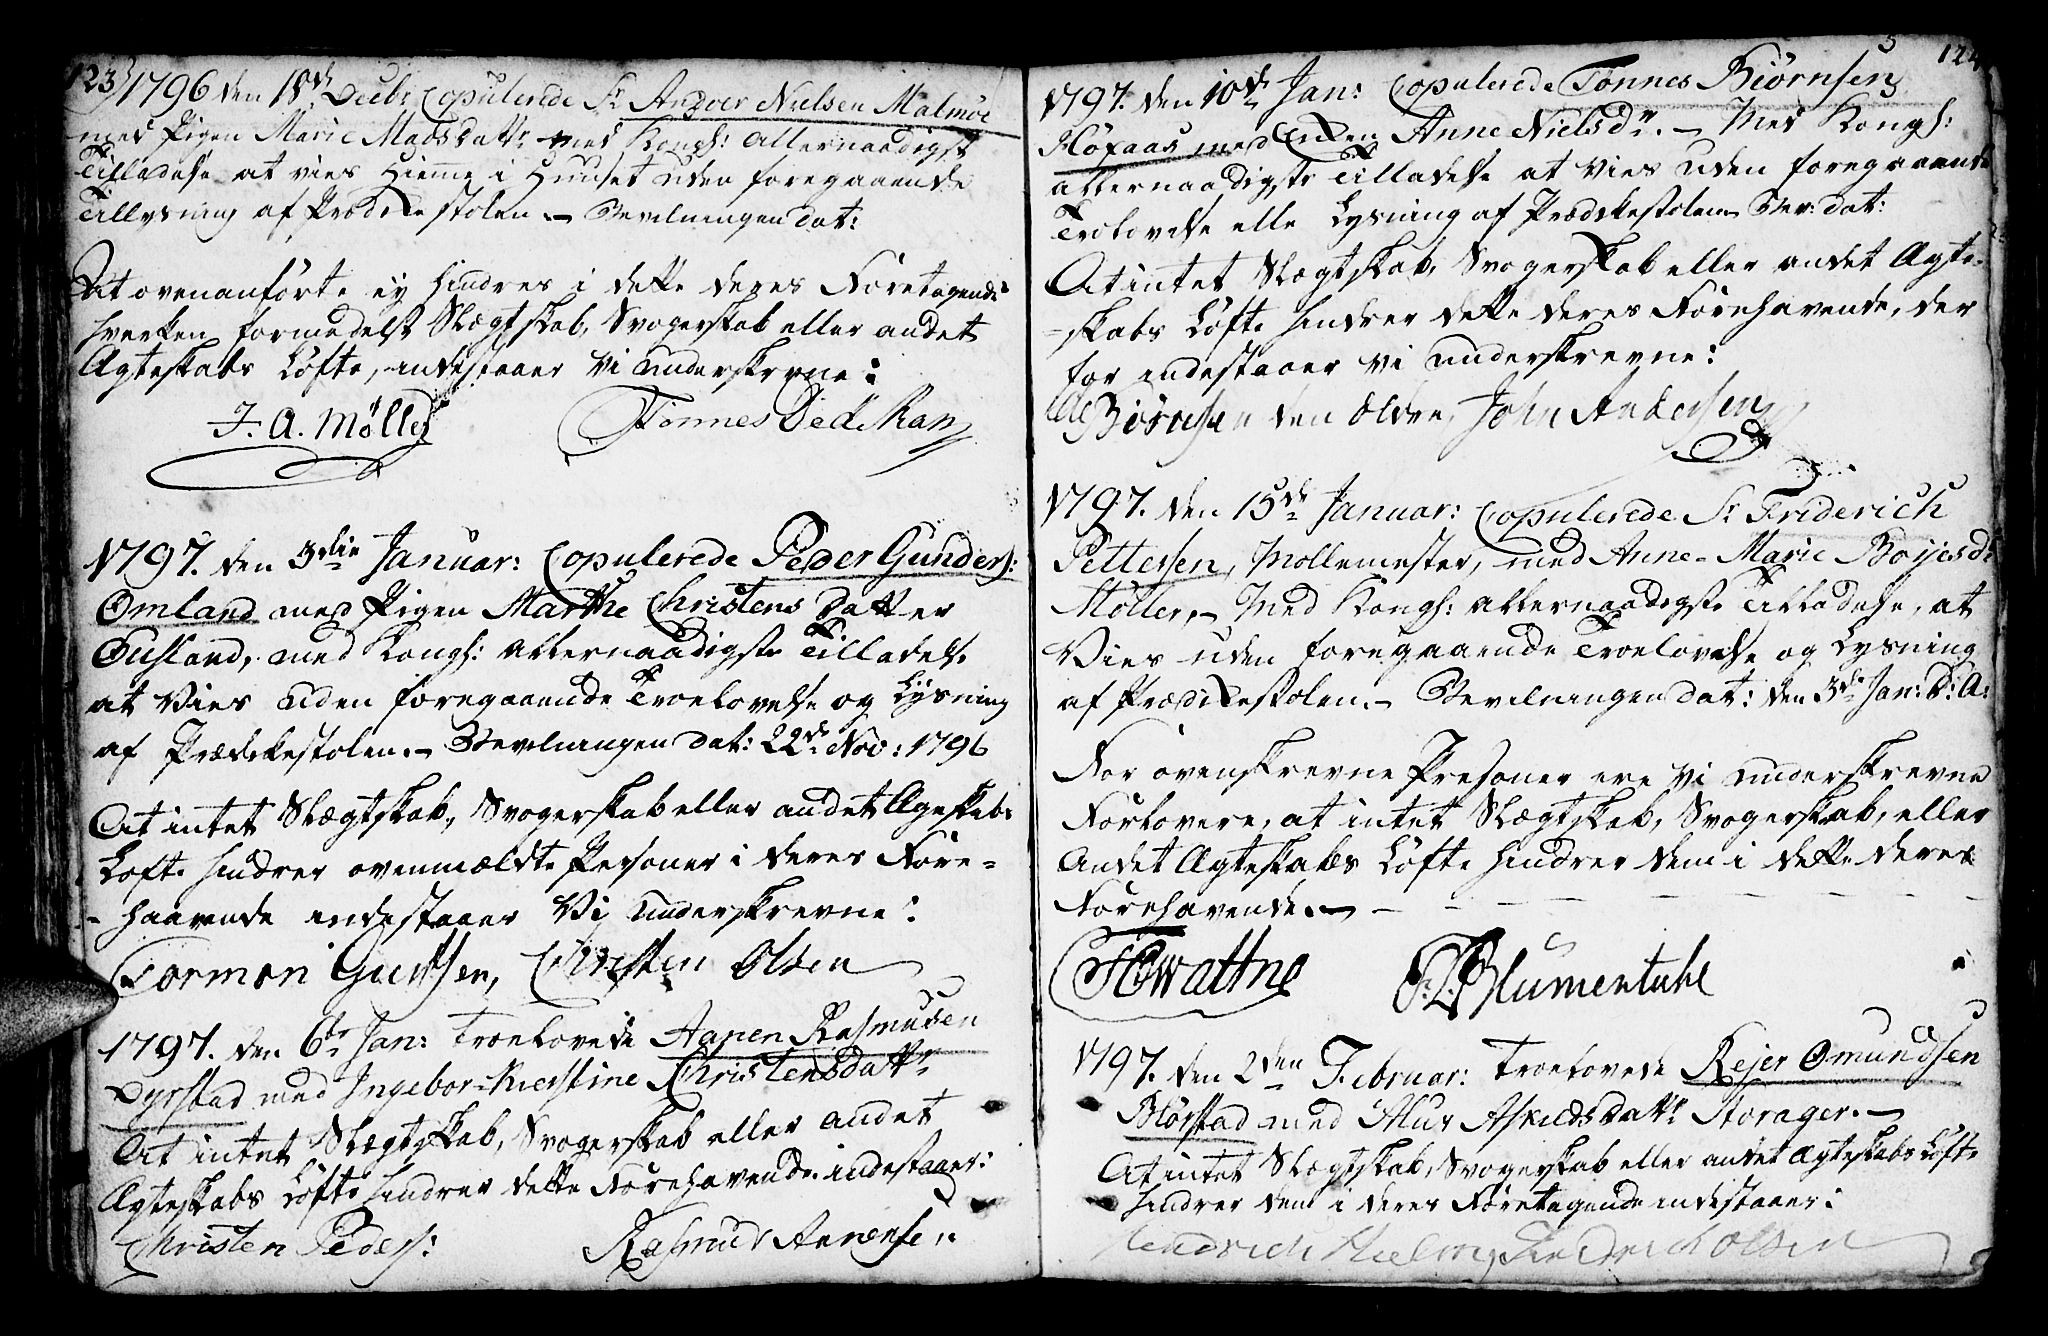 123
1796 den 18de Decbr Copulerede Sr Andver Nielsen Malmöe
med Pigen Marie Madsdattr med Kongl: allernaadigst
Tilladelse at vies Hiemme i Huuset uden foregaaende
Tillysning af Prædikestolen. – Bevilningen dat:
At ovenanförte ey hindres i dette deres Foretagende
hverken formedelst Slægtskab, Svogerskab eller andet
Ægteskabs Löfte, indestaaer vi underskrevne:
J. A. Mölle Tönnes Dedekam
1797. den 3die Januar: Copulerede Peder Gunders:
Omland med Pigen Marthe Christens Datter
Huseland, med Kongl: Allernaadigste Tilladelse
at Vies uden foregaaende Troelovelse og Lysning
af Prædikestolen. – Bevilningen dat: 22de Nov: 1796
At intet Slægtskab, Svogerskab eller andet Ægeskabs
Löfte hindrer ovenmældte Personer i deres Fore=
=haavende indestaaer Vi underskrevne:
Tormon Guttsen, Christen Olsen
1797. den 6te Jan: Troelovede Aanen Rasmusen
Dyrstad med Ingebor=Kierstine Christensdattr
At intet Slægtskab, Svogerskab eller andet
Ægteskabs Löfte hindrer dette Forehavende indestaaer:
Christen Peders: Rasmus Annensen
124
1797. den 10de Jan: Copulerede Tönnes Biörnsen
Höfaas med Enken Anne Nielsdr. – Med Kongl:
allernaadigste Tilladelse at Vies uden foregaaende
Trolovelse elle Lysning af Prædikestolen Bev: dat:
At intet Slægtskab, Svogerskab eller andet Ægte=
=skabs Löfte hindrer dette deres Forehavende, der
for indestaaer vi underskrevne:
Ole Biörnsen den Eldre, John Andersen
1797. den 15de Januar: Copulerede Sr Friderich
Pettersen, Möllemester, med Anne-Marie Boyesdr
Möller, – Med Kongl: Allernaadigste Tilladelse, at
Vies uden foregaaende Troelovelse og Lysning
af Prædikestolen. – Bevilningen dat: den 3de Jan: D: A:
For ovenskrevne Presoner ere Vi underskrevne
Forlovere, at intet Slægtskab, Svogerskab, eller
Andet Ægteskabs Löfte hindrer dem i dette deres
Forehavende. –
Howattne F: L: Blumentuhl
1797. den 2den Februar: Troelovede Rejer Omundsen
Blörstad med Alur Askildsdattr Storager. –
At intet Slægtskab, Svogerskab eller andet Ægteskabs Löfte
hindrer dem i deres Foretagende indestaaer:
Hendrich Hielm, Fredrich Olsen